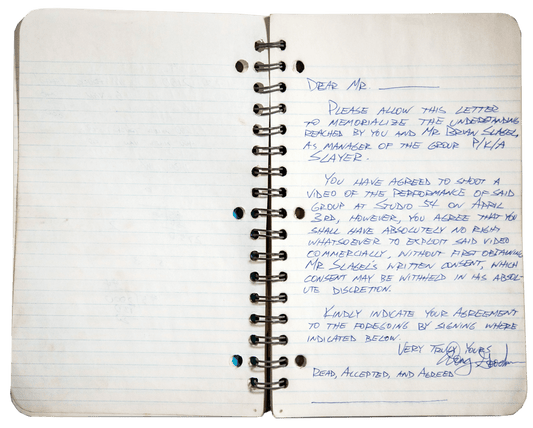 DEAR MR ________
PLEASE ALLOW THIS LETTER
TO MEMORIALIZE THE UNDERSTANDING
REACHED BY YOU AND MR BRIAN SLAGEL,
AS MANAGER OF THE GROUP P/K/A
SLAYER.
YOU HAVE AGREED TO SHOOT A
VIDEO OF THE PERFORMANCE OF SAID
GROUP AT STUDIO 54 ON APRIL
3RD, HOWEVER, YOU AGREE THAT YOU
SHALL HAVE ABSOLUTELY NO RIGHT
WHATSOEVER TO EXPLOIT SAID VIDEO
COMMERCIALLY, WITHOUT FIRST OBTAINING
MR SLAGEL'S WRITTEN CONSENT, WHICH
CONSENT MAY BE WITHHELD IN HIS ABSOL-
UTE DISCRETION.
KINDLY INDICATE YOUR AGREEMENT
TO THE FOREGOING BY SIGNING WHERE
INDICATED BELOW.
VERY TRULY YOURS
READ, ACCEPTED, AND AGREED